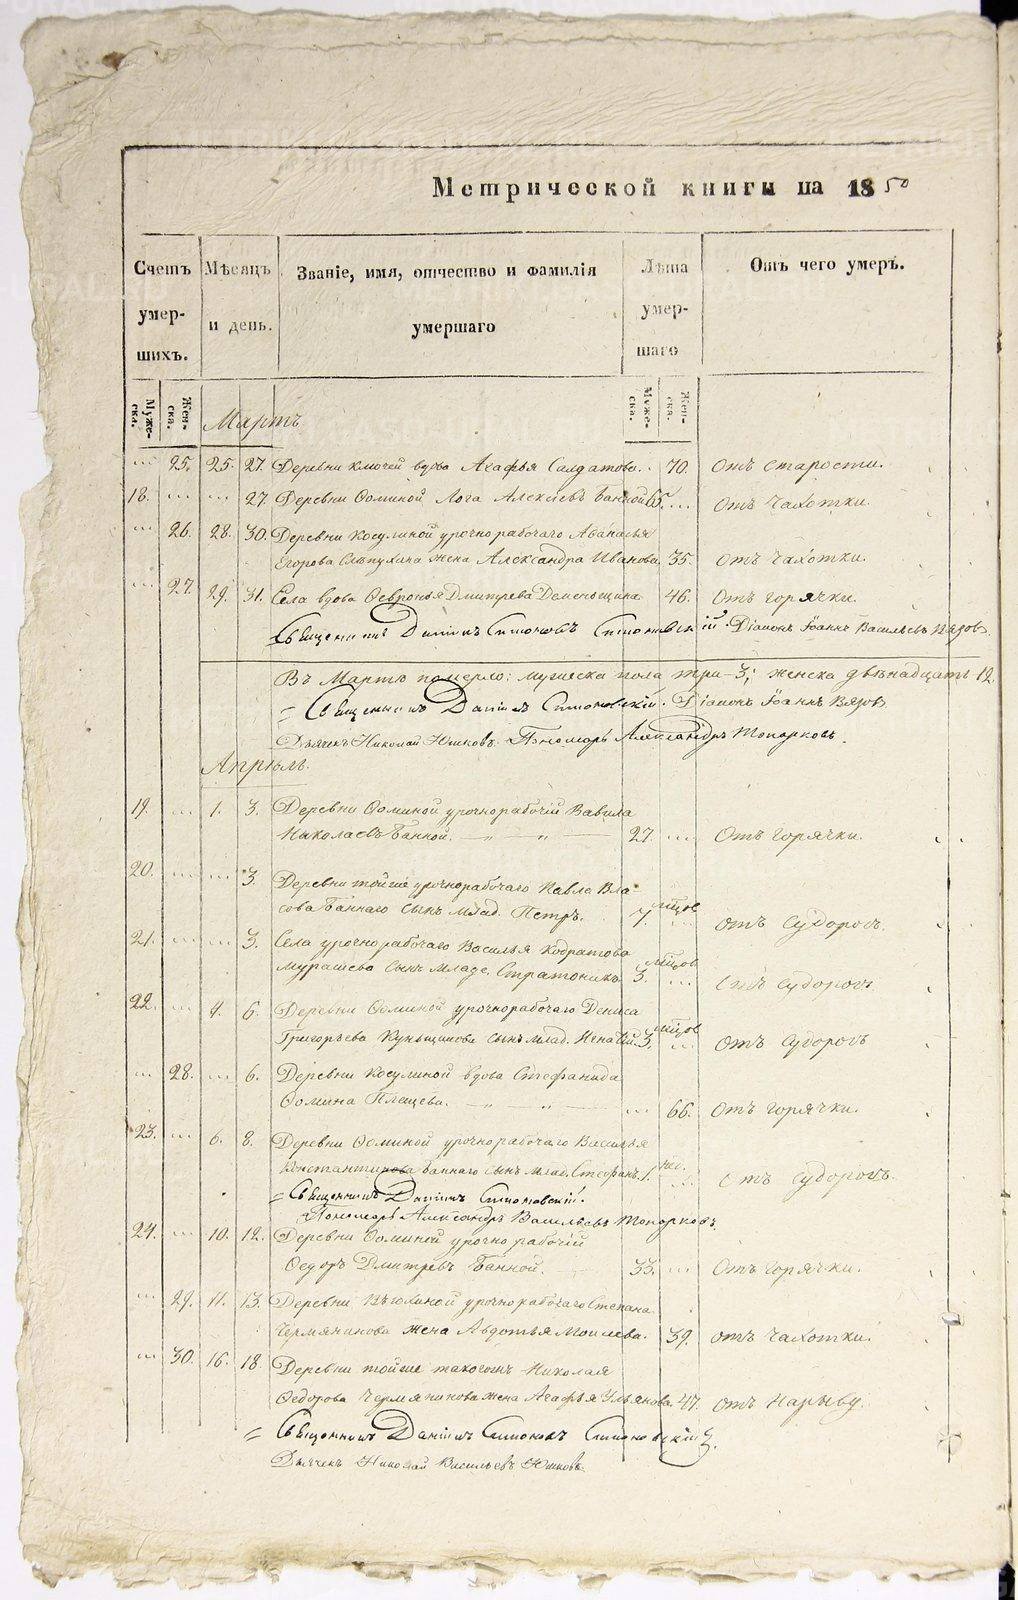 Метрической книги на 1850
Счетъ умер- шихъ.
Мѣсяцъ и день.
Званіе, имя, отчество и фамилія умершаго
Лѣта умер- шаго
Отъ чего умеръ.
Муже- ска.
Жен- ска.
Муже- ска.
Жен- ска.
Мартъ
... 25. 25. 27. Деревни Ключей вдова Агафья Салдатова. 70. Отъ старости.
18. ... ... 27. Деревни Ѳоминой Лога Алексѣевъ Банной 65. ... Отъ Чахотки.
... 26. 28. 30. Деревни Косулиной урочнорабочаго Аѳанасья
Егорова Слѣпухина жена Александра Иванова 35. отъ чахотки.
... 27. 29. 31. Села вдова Ѳевронья Дмитрева Деменьщина 46. Отъ горячки.
Священникъ Даніилъ Симоновъ Симоновскій. Діаконъ Іоаннъ Васильевъ Вязовъ.
Въ Мартѣ померло: мужеска пола три 3; женска двѣнадцать 12.
Священникъ Даніилъ Симоновскій. Діаконъ Іоаннъ Вязовъ
Дьячекъ Николай Юшковъ. Пономарь Александръ Топорковъ.
Апрѣль.
19. ... 1. 3. Деревни Ѳоминой урочнорабочій Вавила
Николаевъ Банной. — „ — 27. ... Отъ горячки.
20. ... ... 3. Деревни тойже урочнорабочаго Павла Вла-
сова Баннаго сынъ млад. Петръ. 7. мцов ... отъ судорогъ.
21. ... ... 3. Села урочнорабочаго Василья Кодратова
Мурашева сынъ младе. Стратоникъ 3. мцов ... отъ судорогъ
22. ... 4. 6. Деревни Ѳоминой урочнорабочаго Дениса
Григорьева Куньщикова сынъ млад. 3. мцов ... отъ судорогъ
... 28. ... 6. Деревни Косулиной вдова Стефанида
Ѳомина Плещева. — „ — ... 66. отъ горячки.
23. ... 6. 8. Деревни Ѳоминой урочнорабочаго Василья
Константинова Баннаго сынъ млад. Стефанъ. 1. ... отъ судорогъ.
Священникъ Даніилъ Симоновскій.
Пономарь Александръ Васильевъ Топорковъ.
24. ... 10. 12. Деревни Ѳоминой урочнорабочій
Ѳедоръ Дмитревъ Банной. 33. ... Отъ горячки.
... 29. 11. 13. Деревни урочнорабочаго Степана
Чермянинова жена Авдотья Моисеева. 39. отъ чахотки.
... 30. 16. 18. Деревни тойже такогожъ Николая
Ѳедорова Чермянинова жена Агафья Ульянова. 47. отъ Нарыву.
Священникъ Даніилъ Симоновъ Симоновскій.
Дьячекъ Николай Васильевъ Юшковъ.